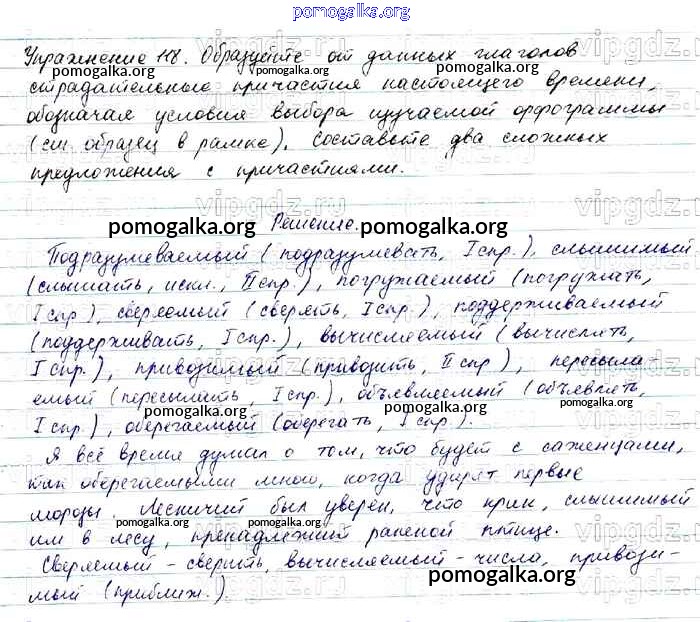 pomogalka.org
Упражнение 118. Образуйте от данных глаголов
страдательные причастия настоящего времени,
обозначая условия выбора изучаемой орфограммы
(см. образец в рамке). Составьте два сложных
предложения с причастиями.
Решение.
Подразумеваемый (подразумевать, I спр.), слышимый
(слышать, искл., II спр.), погружаемый (погружать,
I спр.), сверяемый (сверять, I спр.), поддерживаемый
(поддерживать, I спр.), вычисляемый (вычислять,
I спр.), привозимый (привозить, II спр.), пересыла-
емый (пересылать, I спр.), объявляемый (объявлять,
I спр.), оберегаемый (оберегать, I спр.).
Я всё время думал о том, что будет с саженцами,
так оберегаемыми мною, когда ударят первые
морозы. Лесничий был уверен, что крик, слышимый
им в лесу, принадлежит раненой птице.
Сверяемый - сверить, вычисляемый - числа, привози-
мый (приближ.).
pomogalka.org